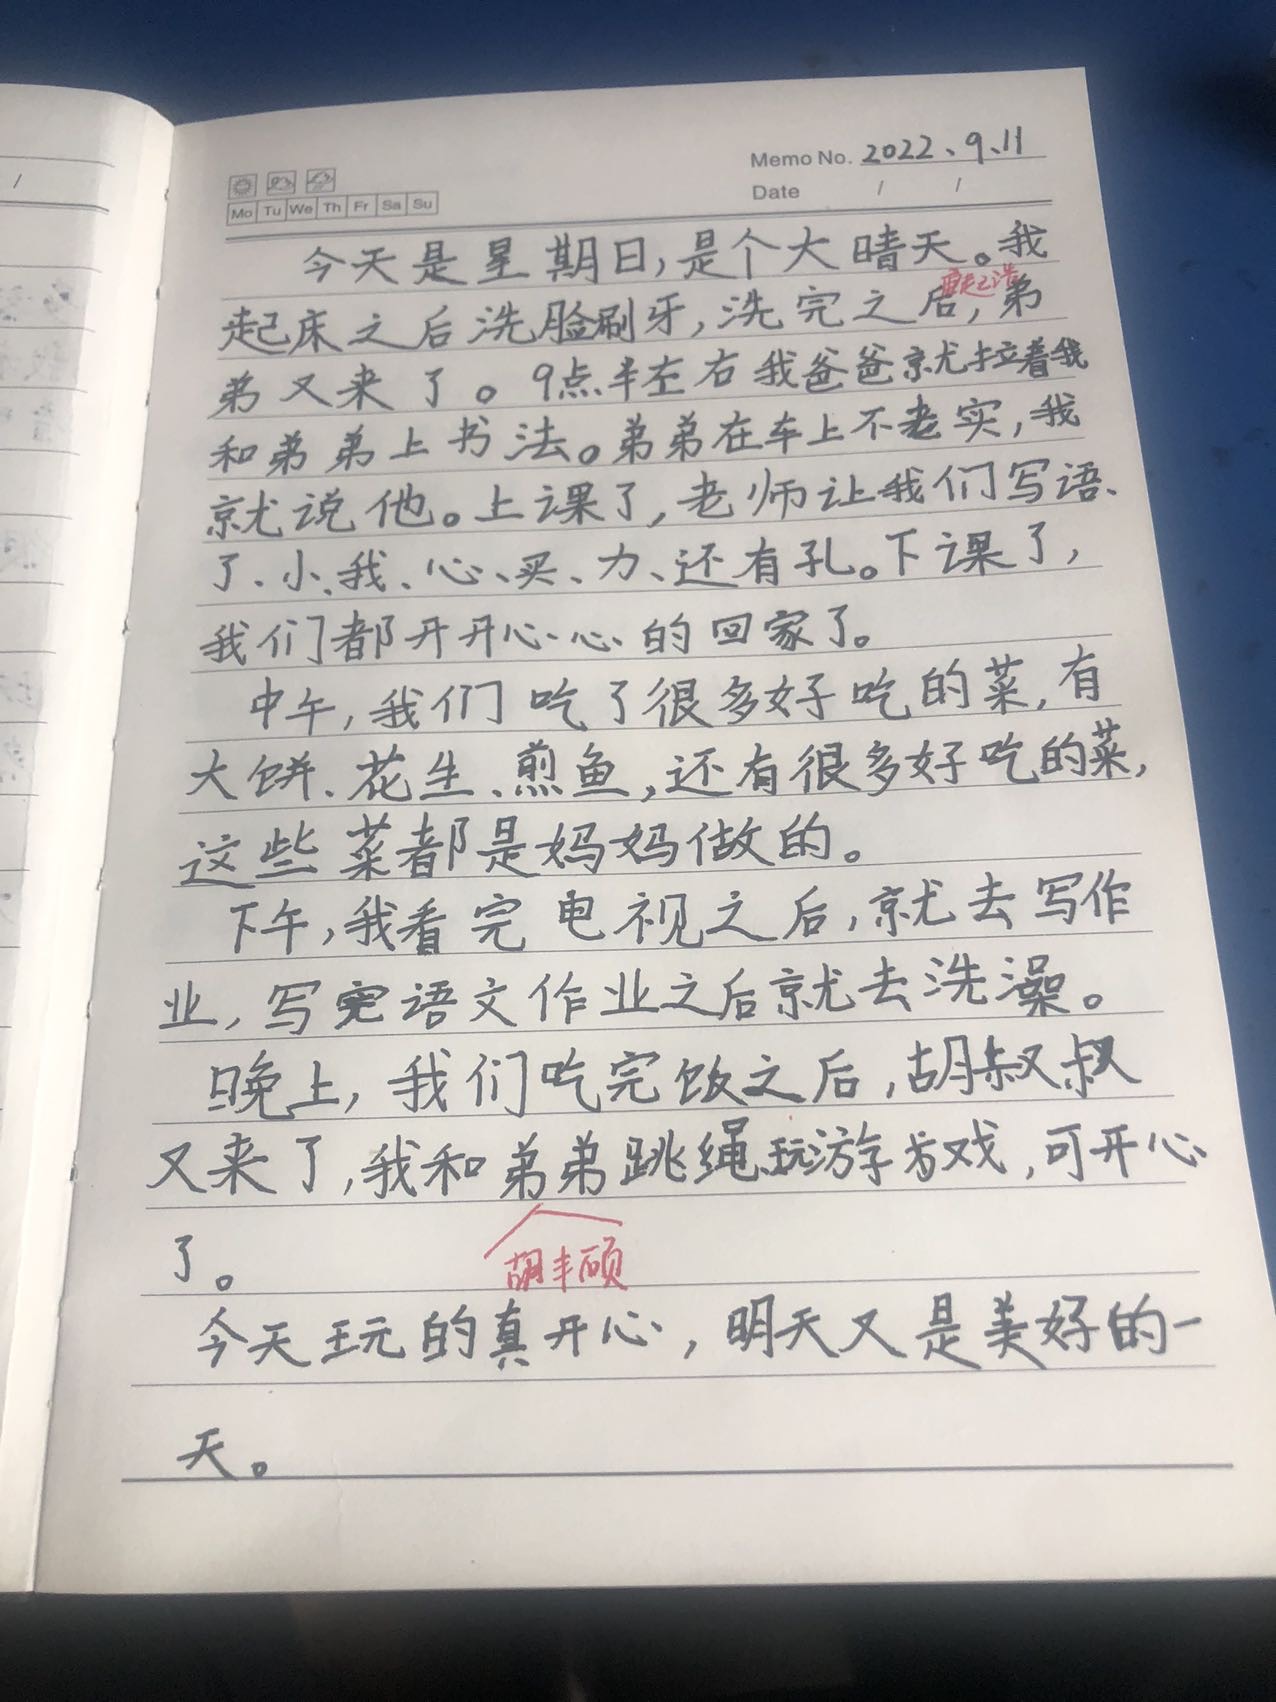 Memo No. 2022、9、11
Date / /
Mo Tu We Th Fr Sa Su
今天是星期日,是个大晴天。我
起床之后洗脸刷牙,洗完之后,弟
弟又来了。9点半左右我爸爸就拉着我
和弟弟上书法。弟弟在车上不老实,我
就说他。上课了,老师让我们写语、
了、小、我、心、买、力、还有孔。下课了,
我们都开开心心的回家了。
中午,我们吃了很多好吃的菜,有
大饼、花生、煎鱼,还有很多好吃的菜,
这些菜都是妈妈做的。
下午,我看完电视之后,就去写作
业,写完语文作业之后就去洗澡。
晚上,我们吃完饭之后,胡叔叔
又来了,我和弟弟跳绳、玩游戏,可开心
了。
胡丰硕
今天玩的真开心,明天又是美好的一
天。